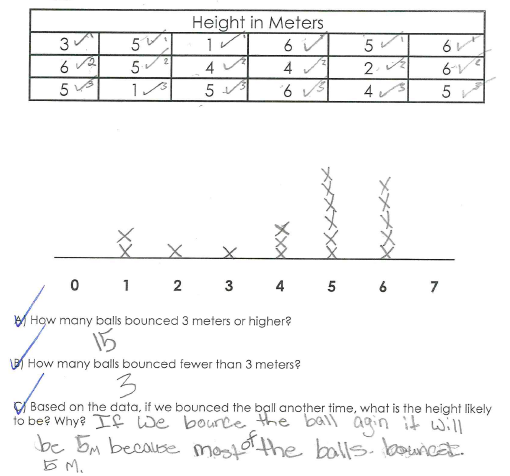 Height in Meters
3 ✓1 5 ✓1 1 ✓1 6 ✓1 5 ✓1 6 ✓1
6 ✓2 5 ✓2 4 ✓2 4 ✓2 2 ✓2 6 ✓2
5 ✓3 1 ✓3 5 ✓3 6 ✓3 4 ✓3 5 ✓3
0 1 2 3 4 5 6 7
A) How many balls bounced 3 meters or higher?
15
B) How many balls bounced fewer than 3 meters?
3
C) Based on the data, if we bounced the ball another time, what is the height likely
to be? Why? If we bounce the ball agin it will
be 5M because most of the balls bounced
5 M.